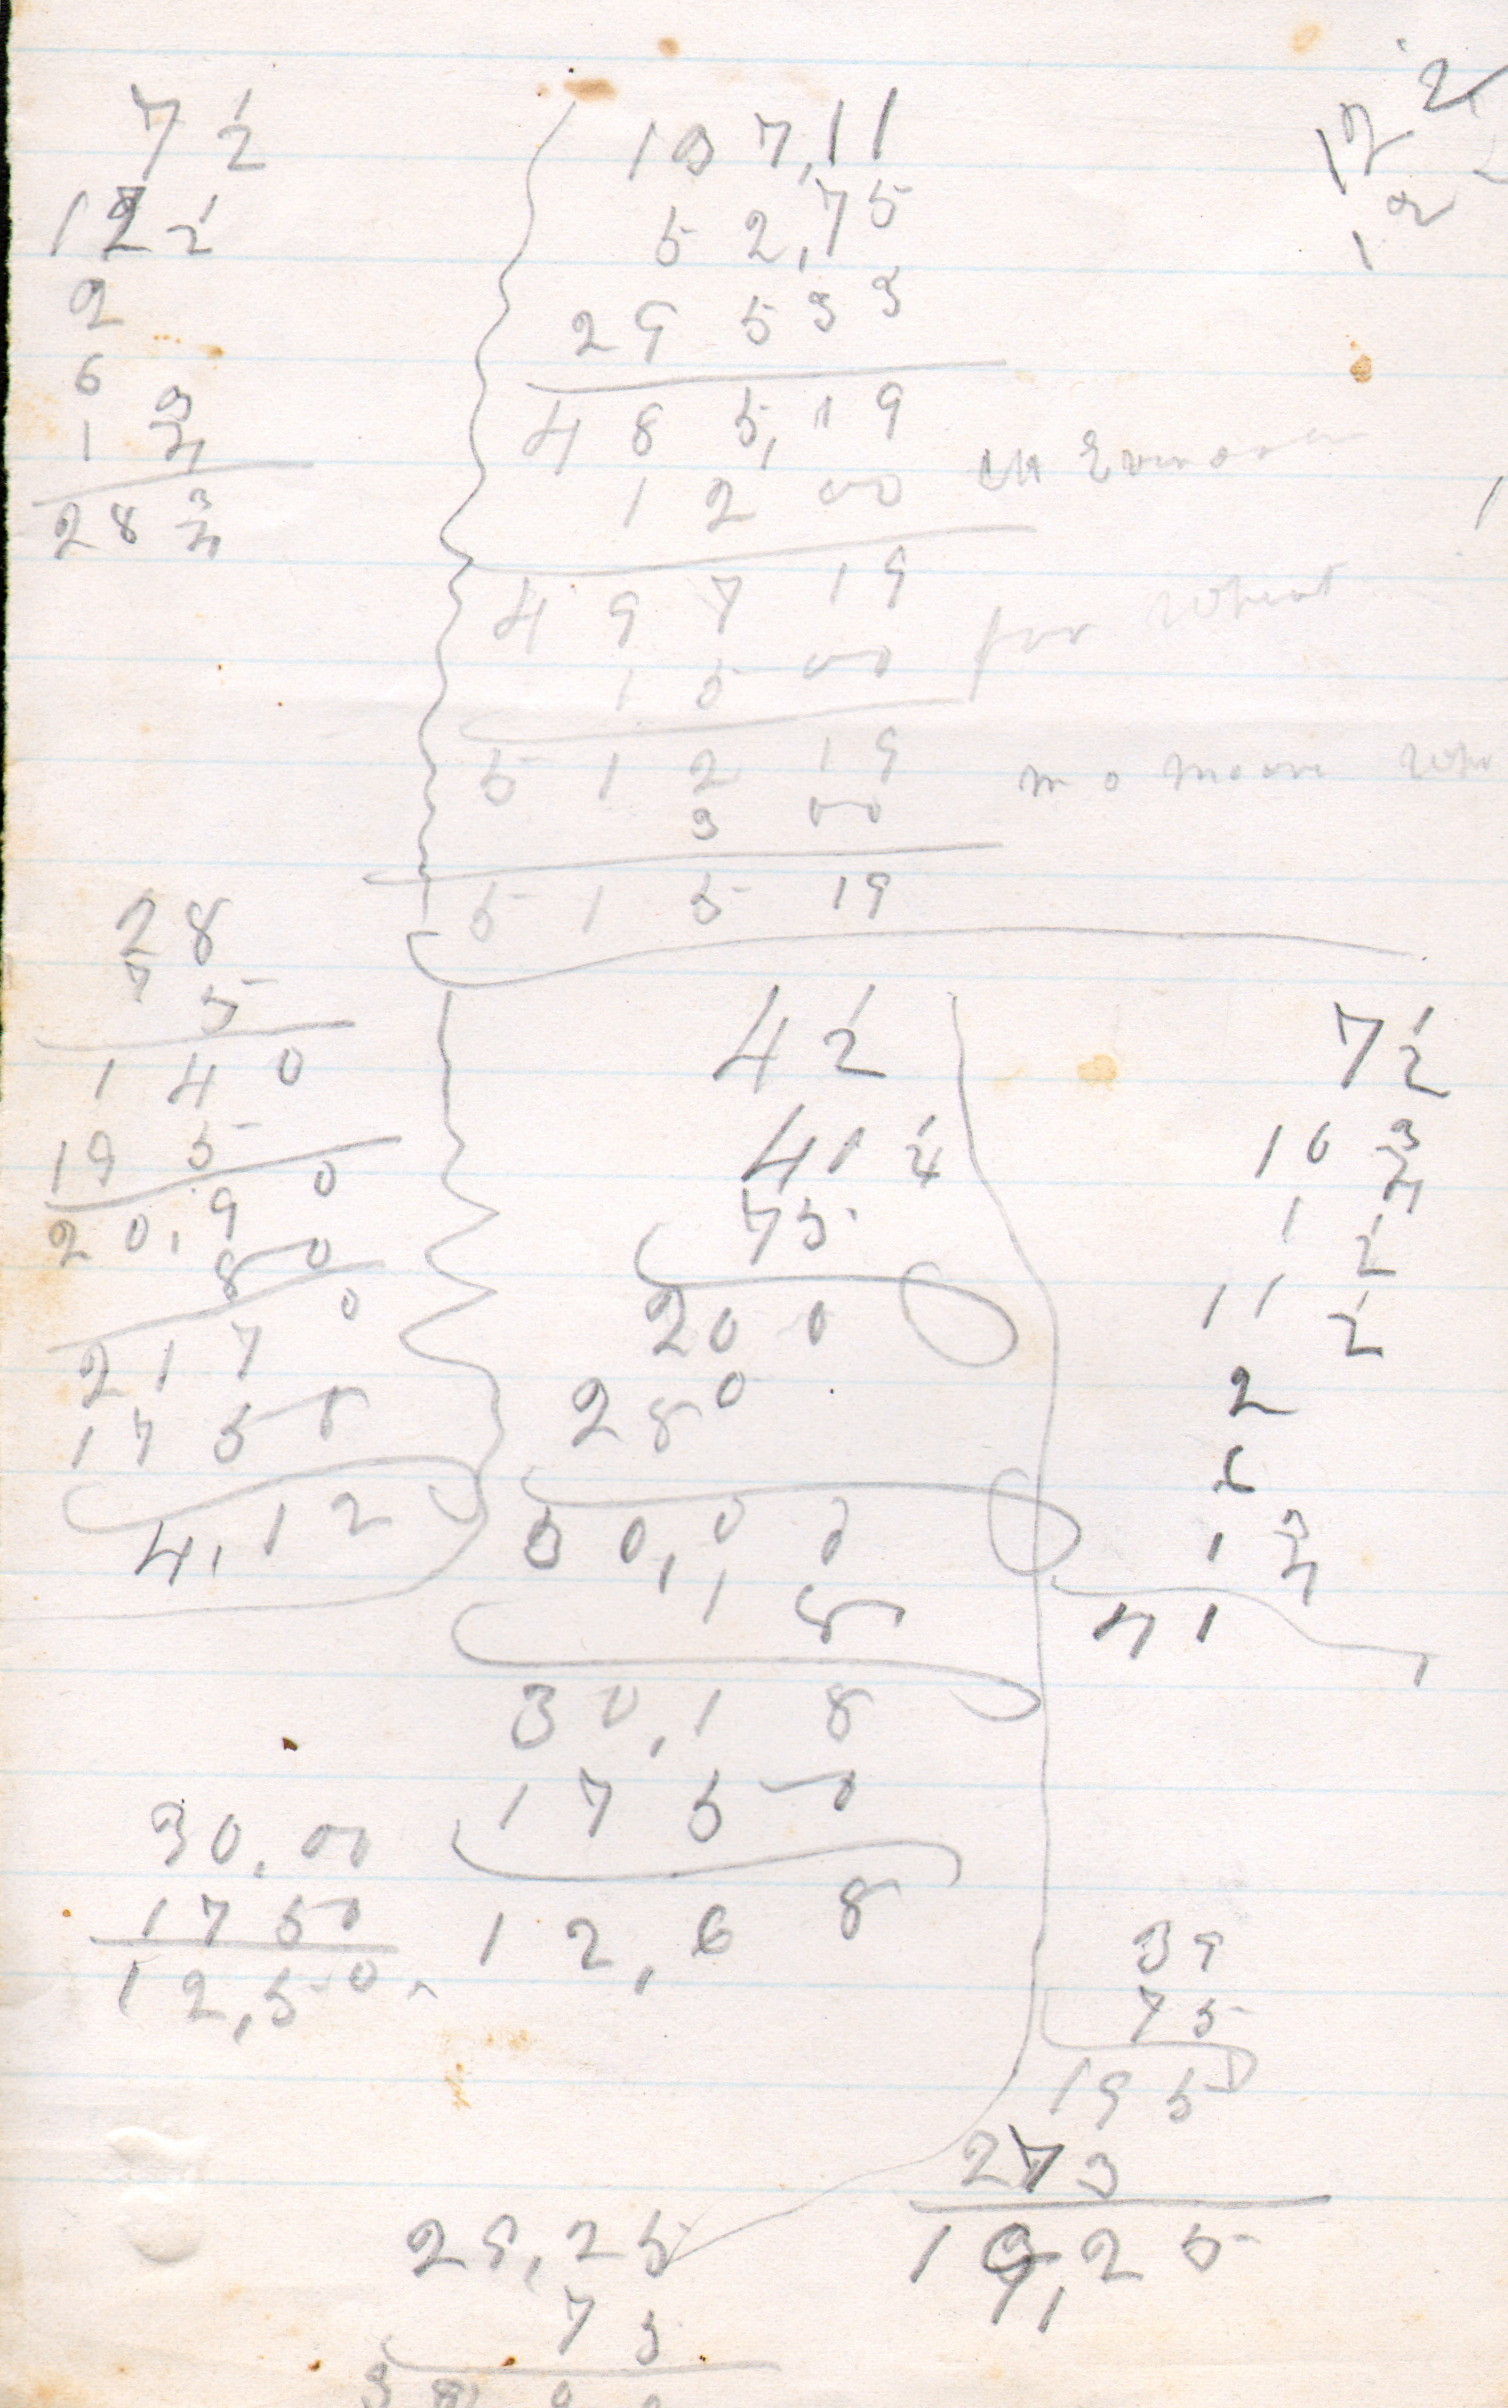 7 1/2
12 1/2
2
6
1 3/4
28 3/4
137,11
52,75
29 533
485,19
12 00
497 19
15 00 for wheat
512 19
3 00
515 19
12
2
1
28
75
140
195
20,90
80
2170
1750
4,12
4 1/2
41 1/4
75
200
280
30,00
18
30,18
1750
12,68
7 1/2
16 3/4
1 1/2
11 1/2
2
1 3/4
41
30,00
1750
12,50
39
75
195
273
19,25
29,25
75